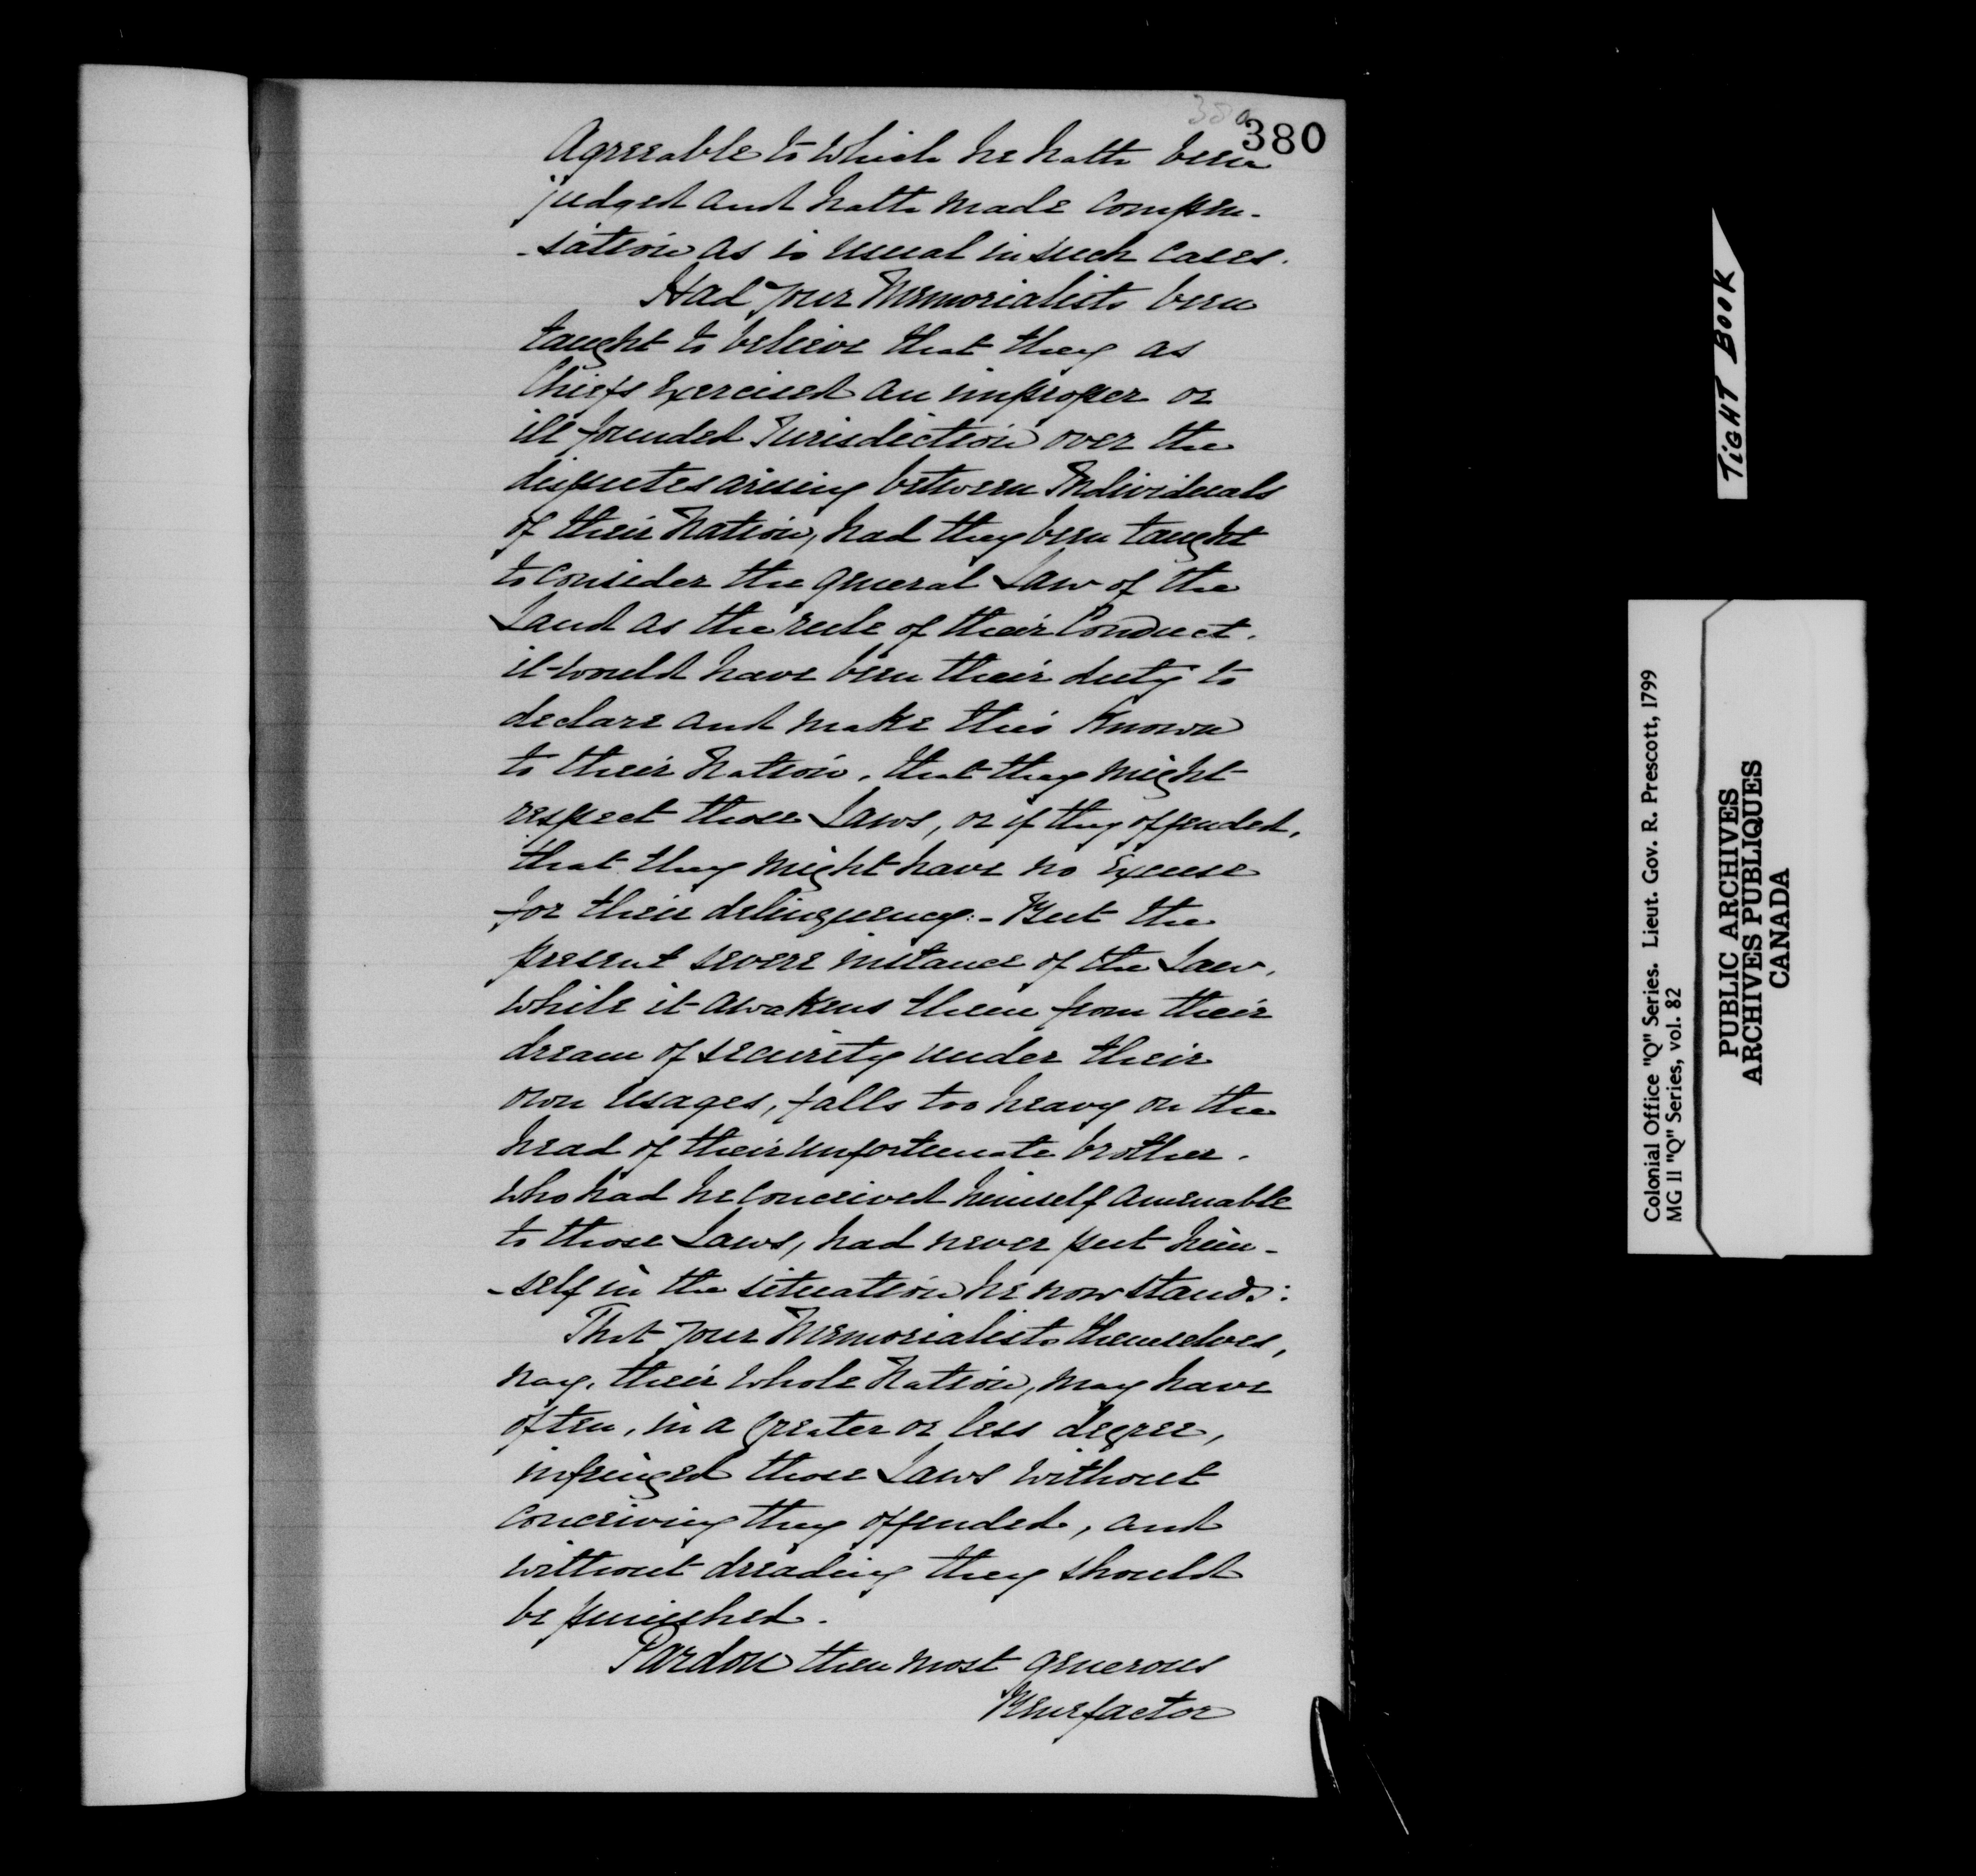 380
380
Agreeable to which he hath been
judged and hath made compen-
-sation as is usual in such cases.
Had your Memorialists been
taught to believe that they as
Chiefs exercised an improper or
ill founded Jurisdiction over the
disputes arising between Individuals
of their Nation, had they been taught
to consider the general Law of the
Land as the rule of their Conduct.
it would have been their duty to
declare and make this known
to their Nation, that they might
respect those Laws, or if they offended,
that they might have no Excuse
for their delinquency:- But the
present severe instance of the Law,
while it awakens them from their
dream of security under their
own usages, falls too heavy on the
head of their unfortunate brother.
who had he conceived himself amenable
to those Laws, had never put him-
-self in the situation he now stands:
That your Memorialists themselves,
nay, their whole Nation, may have
often, in a greater or less degree,
infringed those Laws without
conceiving they offended, and
without dreading they should
be punished.
Pardon then most generous
Benefactor
TIGHT BOOK
Colonial Office "Q" Series. Lieut. Gov. R. Prescott, 1799
MG 11 "Q" Series, vol. 82
PUBLIC ARCHIVES
ARCHIVES PUBLIQUES
CANADA